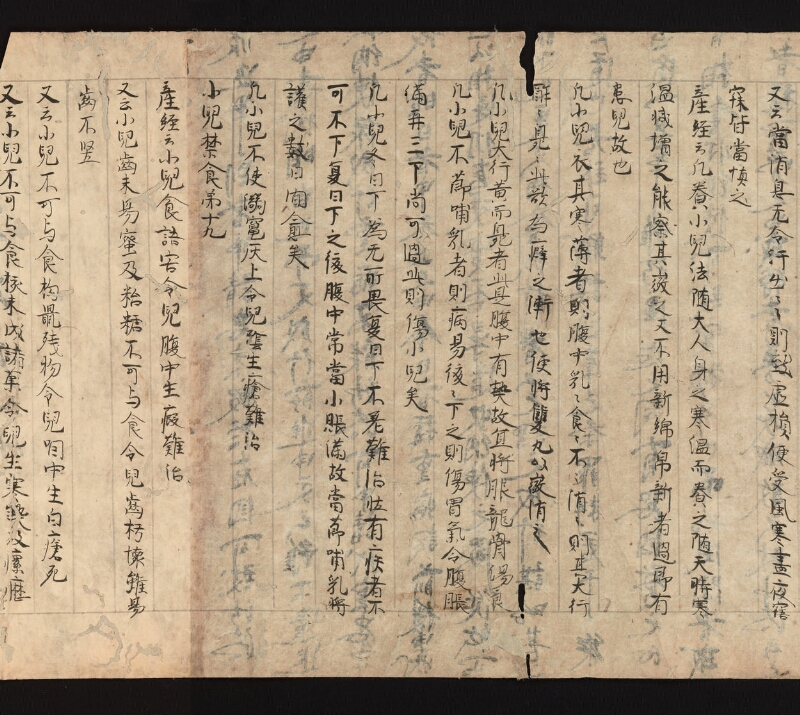 又云當消息无令汗出〻〻則致虛損便受風寒晝夜寤
寐皆當慎之
産経云凡養小兒法随大人身之寒温而養之随天時寒
温減增之能察其
又不用新綿帛新者過即有
患兒故也
凡小兒衣其寒薄者則腹中乳〻食〻不〻消〻則其大行
酢〻臭〻此欲為癖之漸也便将雙丸以微消之
凡小兒大行黄而臭者此其腹中有熱故宜将服龍骨湯
凡小兒不節哺乳者則病易復〻下之則傷胃氣令腹脹
滿再三下尚可過此則傷小兒矣
凡小兒冬日下為无所畏夏日下不差難治
有疾者不
可不下夏日下之後腹中常當小脹滿故當節哺乳将
護之數日間愈矣
凡小兒不使溺竈灰上令兒陰生瘡難治
小兒禁食第十九
産経云小兒食諸害令兒腹中生瘕難治
又云小兒齒未易蜜及飴糖不可与食令兒齒朽
雖易
齒不竪
又云小兒不可与食狗鼠残物令兒咽中生白瘡死
又云小兒不可与食核未成諸菓令兒生寒熱及瘰癧